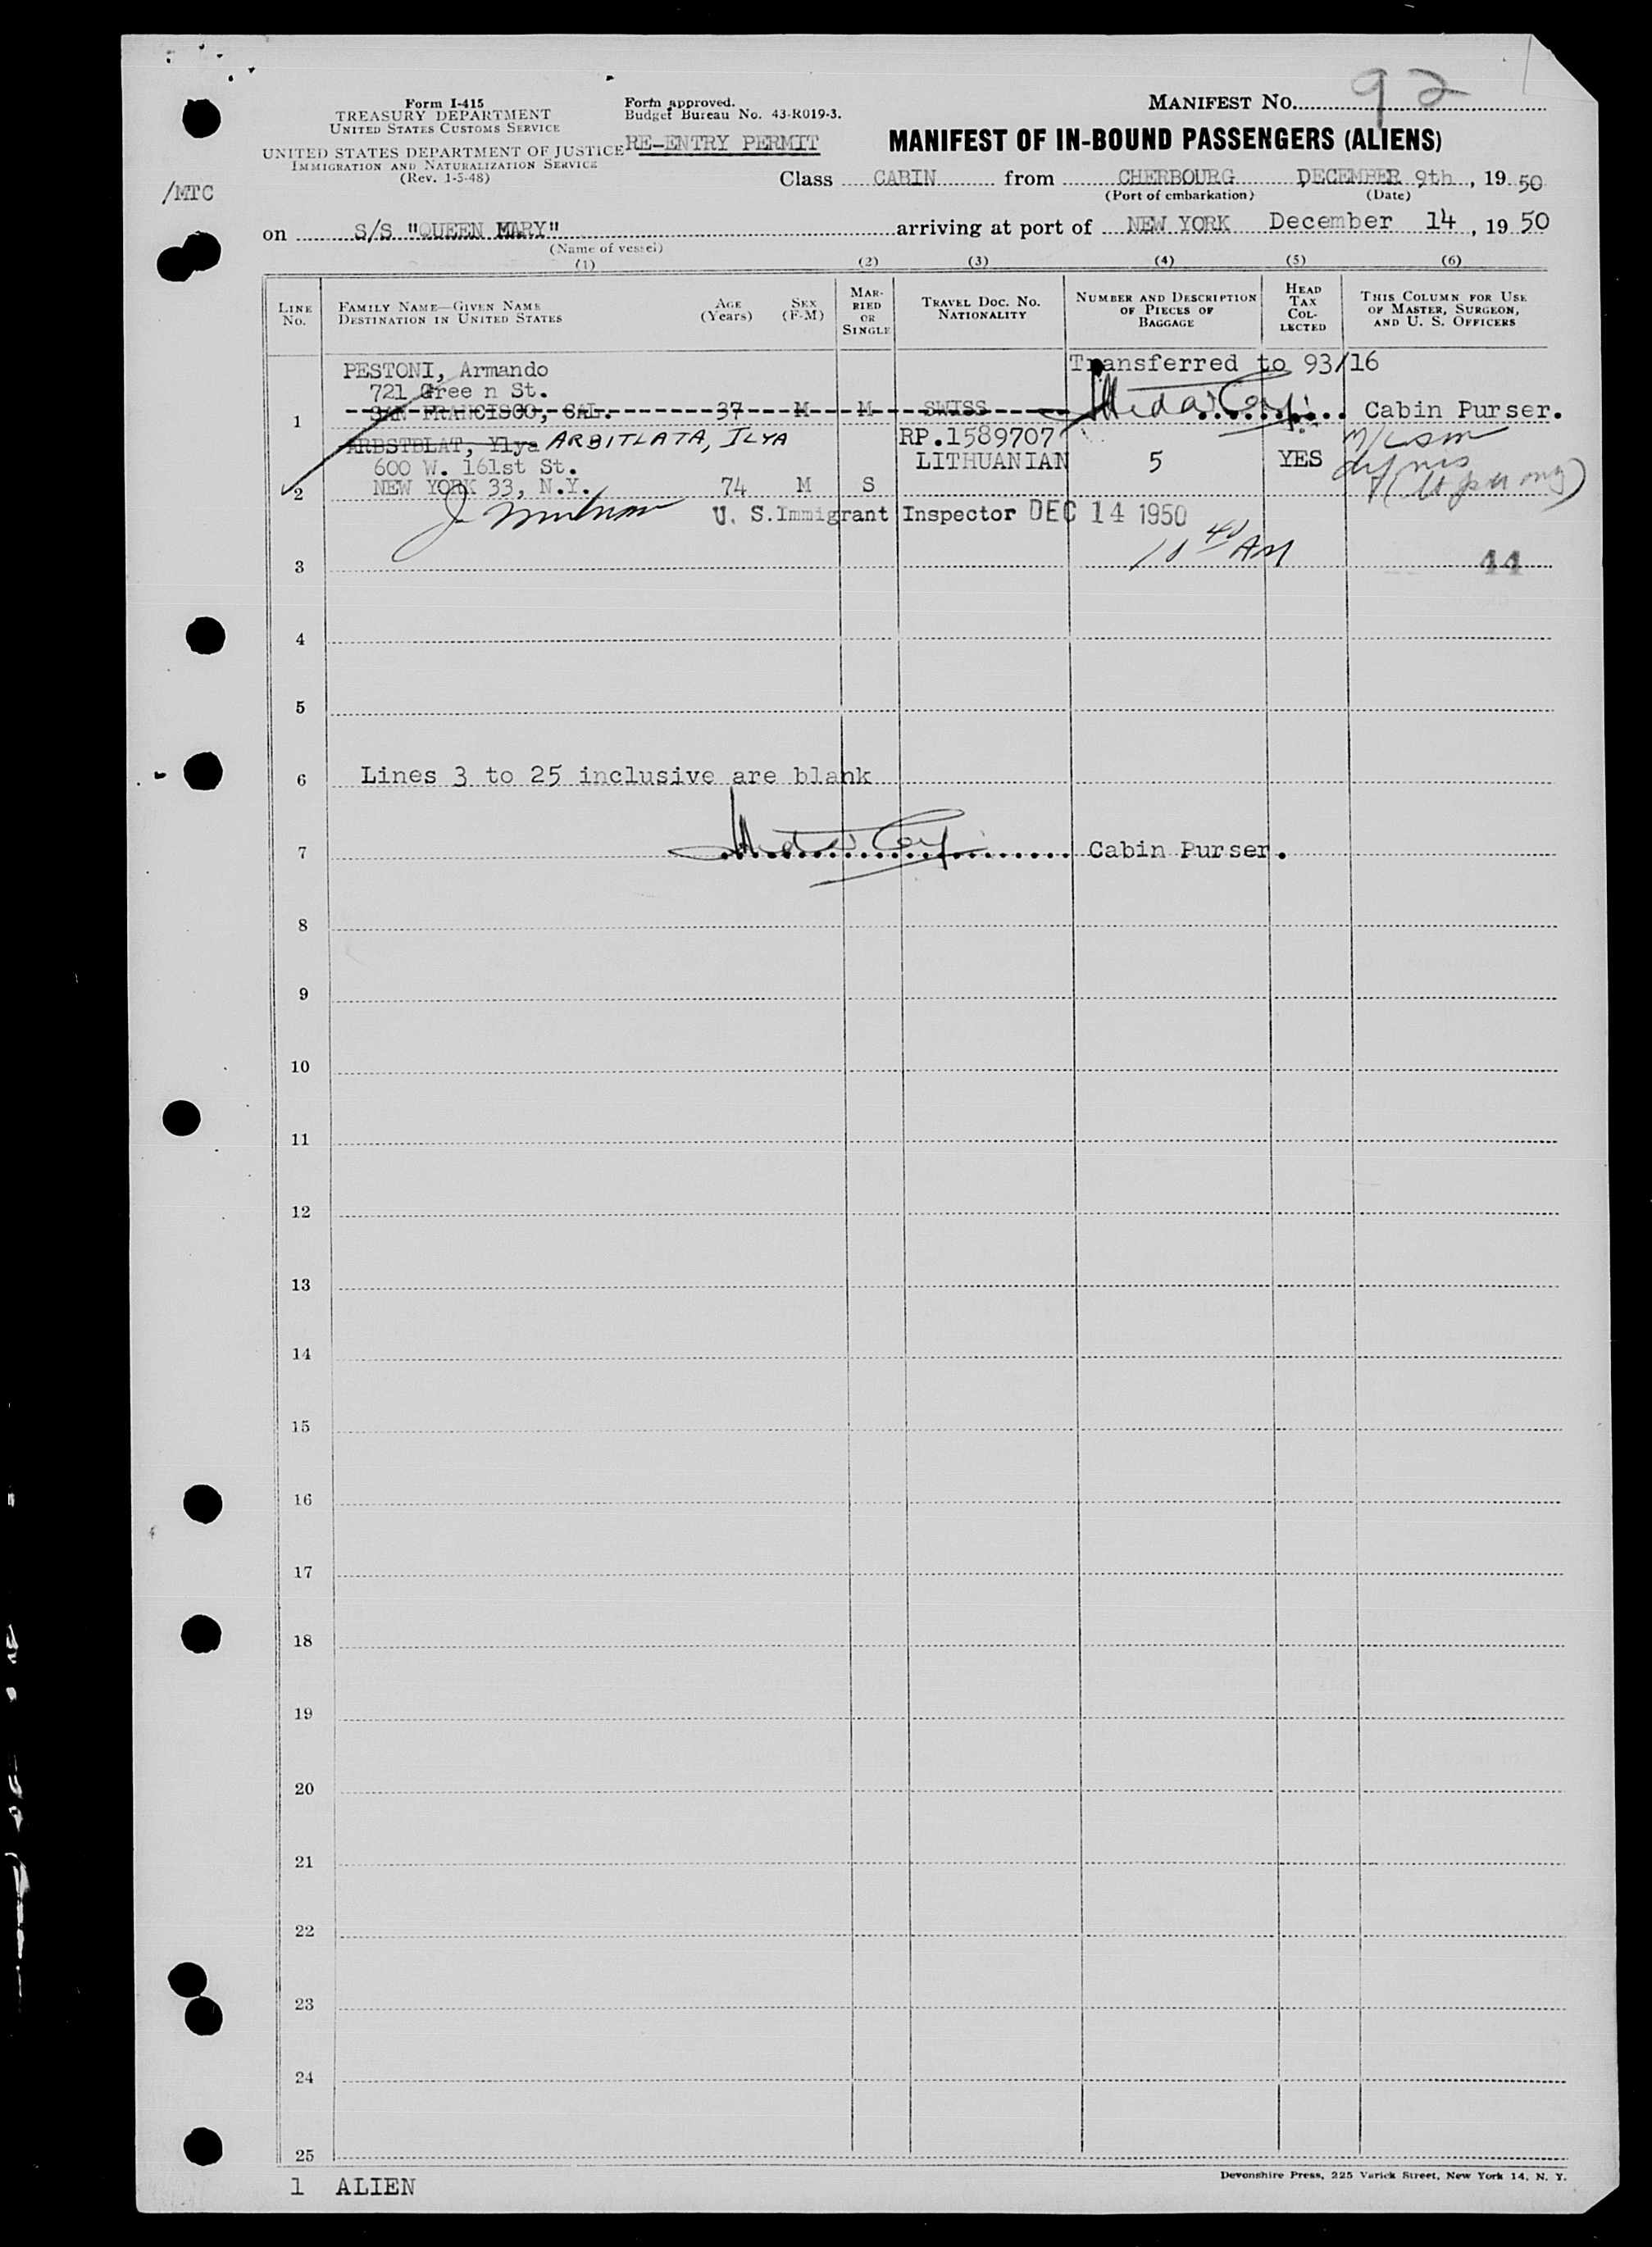 MANIFEST NO. 92
Form I-415
TREASURY DEPARTMENT
UNITED STATES CUSTOMS SERVICE
UNITED STATES DEPARTMENT OF JUSTICE
IMMIGRATION AND NATURALIZATION SERVICE
(Rev. 1-5-48)
Form approved.
Budget Bureau No. 43-R019-3.
RE-ENTRY PERMIT
MANIFEST OF IN-BOUND PASSENGERS (ALIENS)
/MTC
Class CABIN from CHERBOURG DECEMBER 9th, 19 50
(Port of embarkation) (Date)
on S/S "QUEEN MARY" arriving at port of NEW YORK December 14, 19 50
(Name of vessel)
(1) (2) (3) (4) (5) (6)
LINE No.
FAMILY NAME—GIVEN NAME
DESTINATION IN UNITED STATES
AGE (Years)
SEX (F-M)
MARRIED OR SINGLE
TRAVEL DOC. NO. NATIONALITY
NUMBER AND DESCRIPTION OF PIECES OF BAGGAGE
HEAD TAX COLLECTED
THIS COLUMN FOR USE OF MASTER, SURGEON, AND U. S. OFFICERS
PESTONI, Armando Transferred to 93/16
721 Gree n St.
1 SAN FRANCISCO, CAL. 37 M M SWISS Cabin Purser.
ARBSTBLAT, Ylya ARBITLATA, ILYA RP.1589707
600 W. 161st St. LITHUANIAN 5 YES
2 NEW YORK 33, N.Y. 74 M S
U. S. Immigrant Inspector DEC 14 1950
10 40 AM
3 44
4
5
6 Lines 3 to 25 inclusive are blank
7 Cabin Purser.
8
9
10
11
12
13
14
15
16
17
18
19
20
21
22
23
24
25
1 ALIEN
Devonshire Press, 225 Varick Street, New York 14, N. Y.